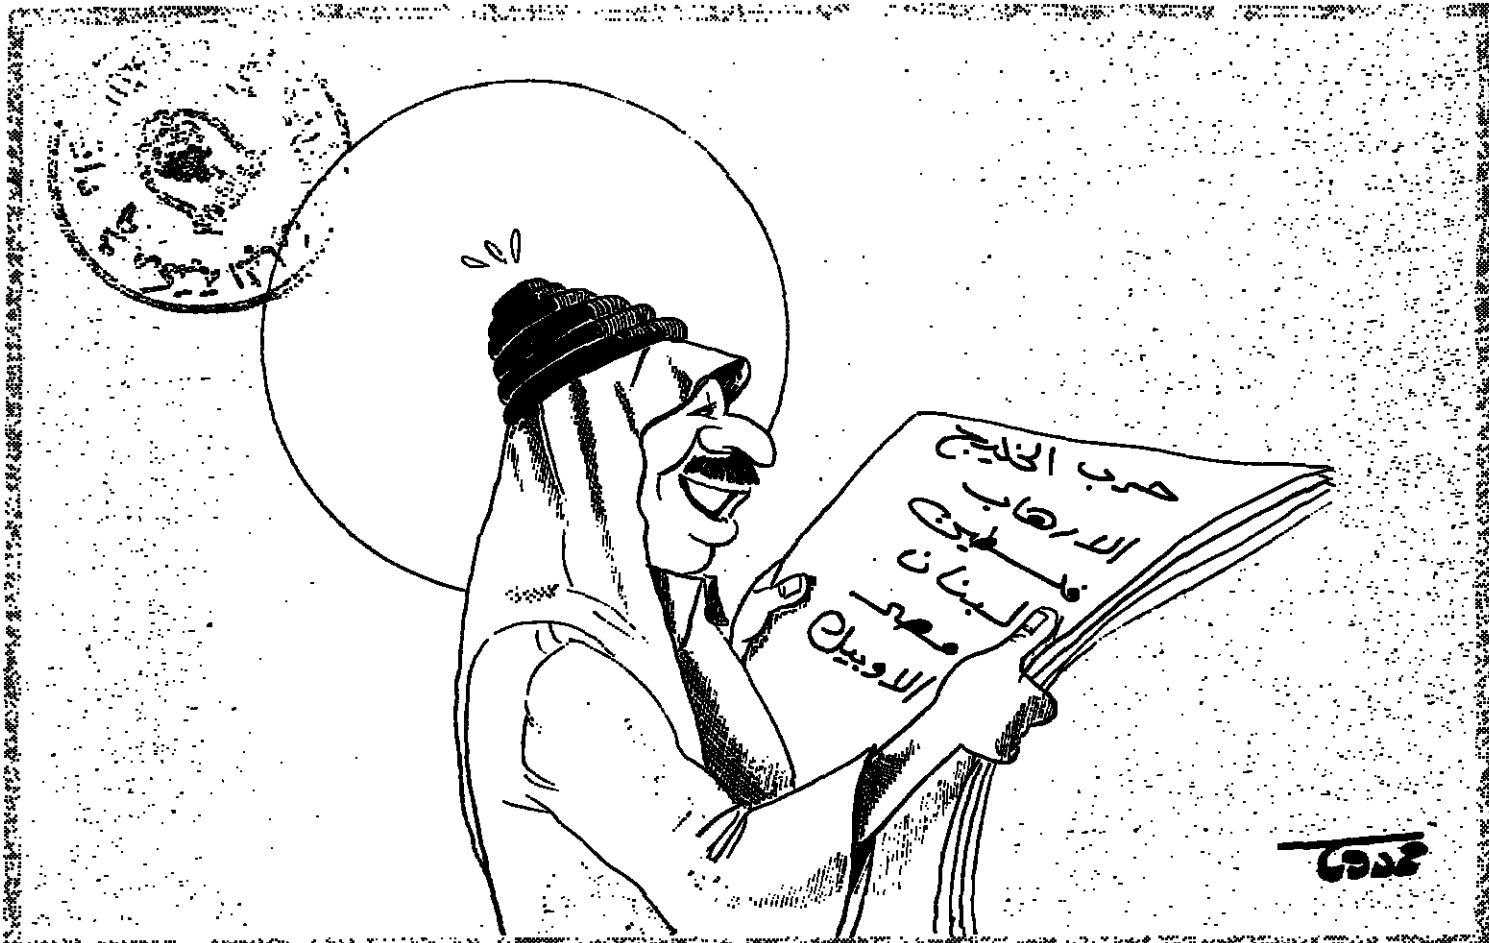 حرب الخليج
الارهاب
فلسطين
لبنان
مصر
الاوبيك